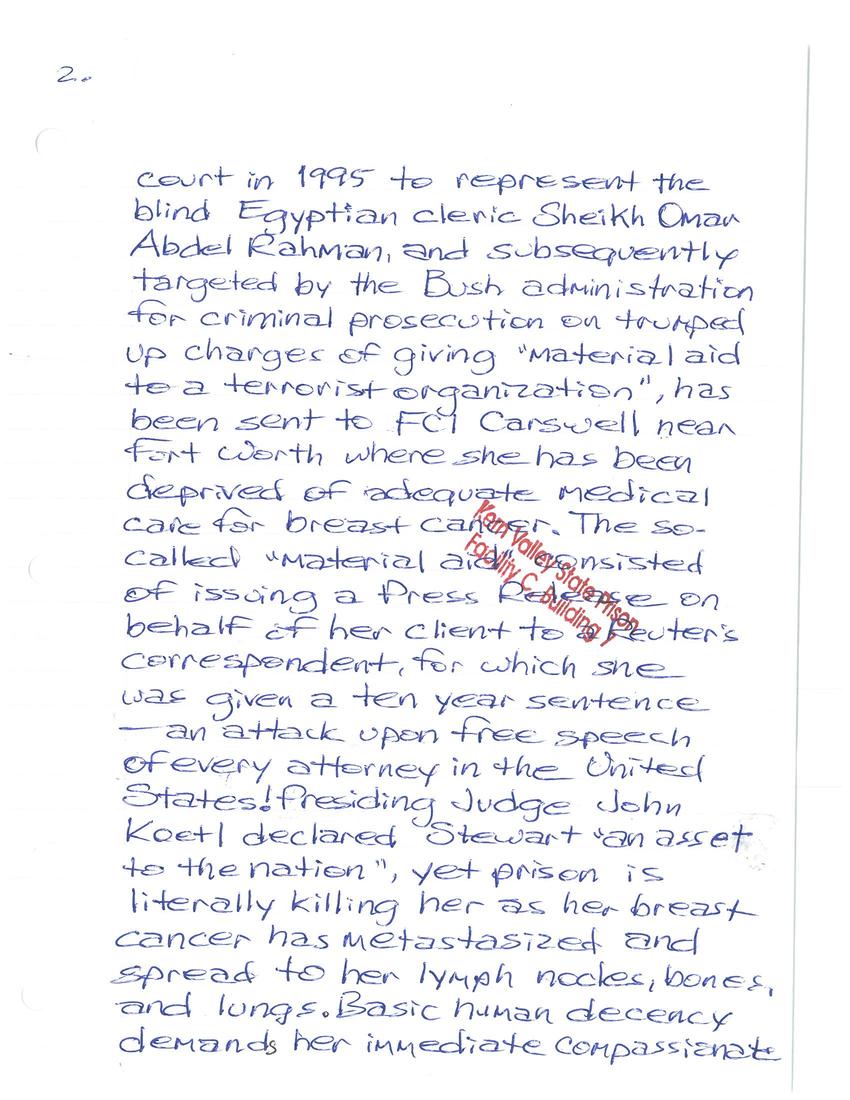 2.
court in 1995 to represent the
blind Egyptian cleric Sheikh Omar
Abdel Rahman, and subsequently
targeted by the Bush administration
for criminal prosecution on trumped
up charges of giving "material aid
to a terrorist organization", has
been sent to FCI Carswell near
Fort Worth where she has been
deprived of adequate medical
care for breast cancer. The so-
called "material aid" consisted
of issuing a Press Release on
behalf of her client to a Reuter's
correspondent, for which she
was given a ten year sentence
—an attack upon free speech
of every attorney in the United
States! Presiding Judge John
Koetl declared Stewart "an asset
to the nation", yet prison is
literally killing her as her breast
cancer has metastasized and
spread to her lymph nodes, bones,
and lungs. Basic human decency
demands her immediate compassionate
Kern Valley State Prison
Facility C, Building 7